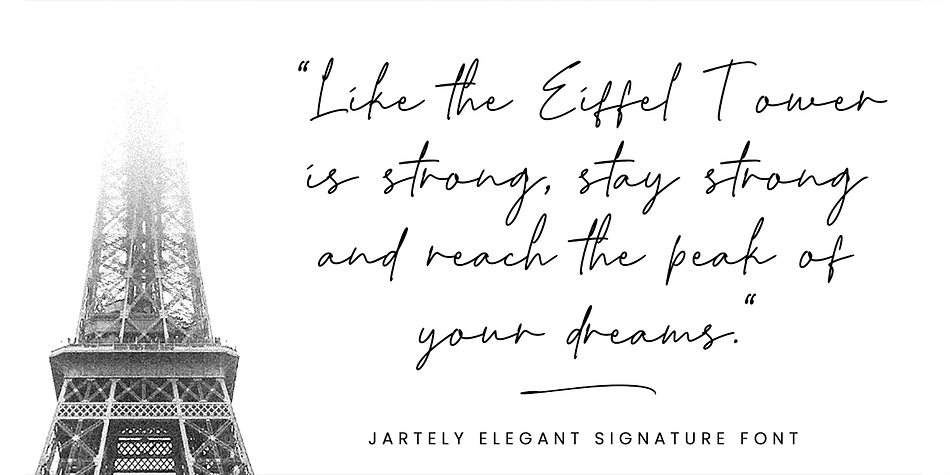 “Like the Eiffel Tower
is strong, stay strong
and reach the peak of
your dreams.“
JARTELY ELEGANT SIGNATURE FONT